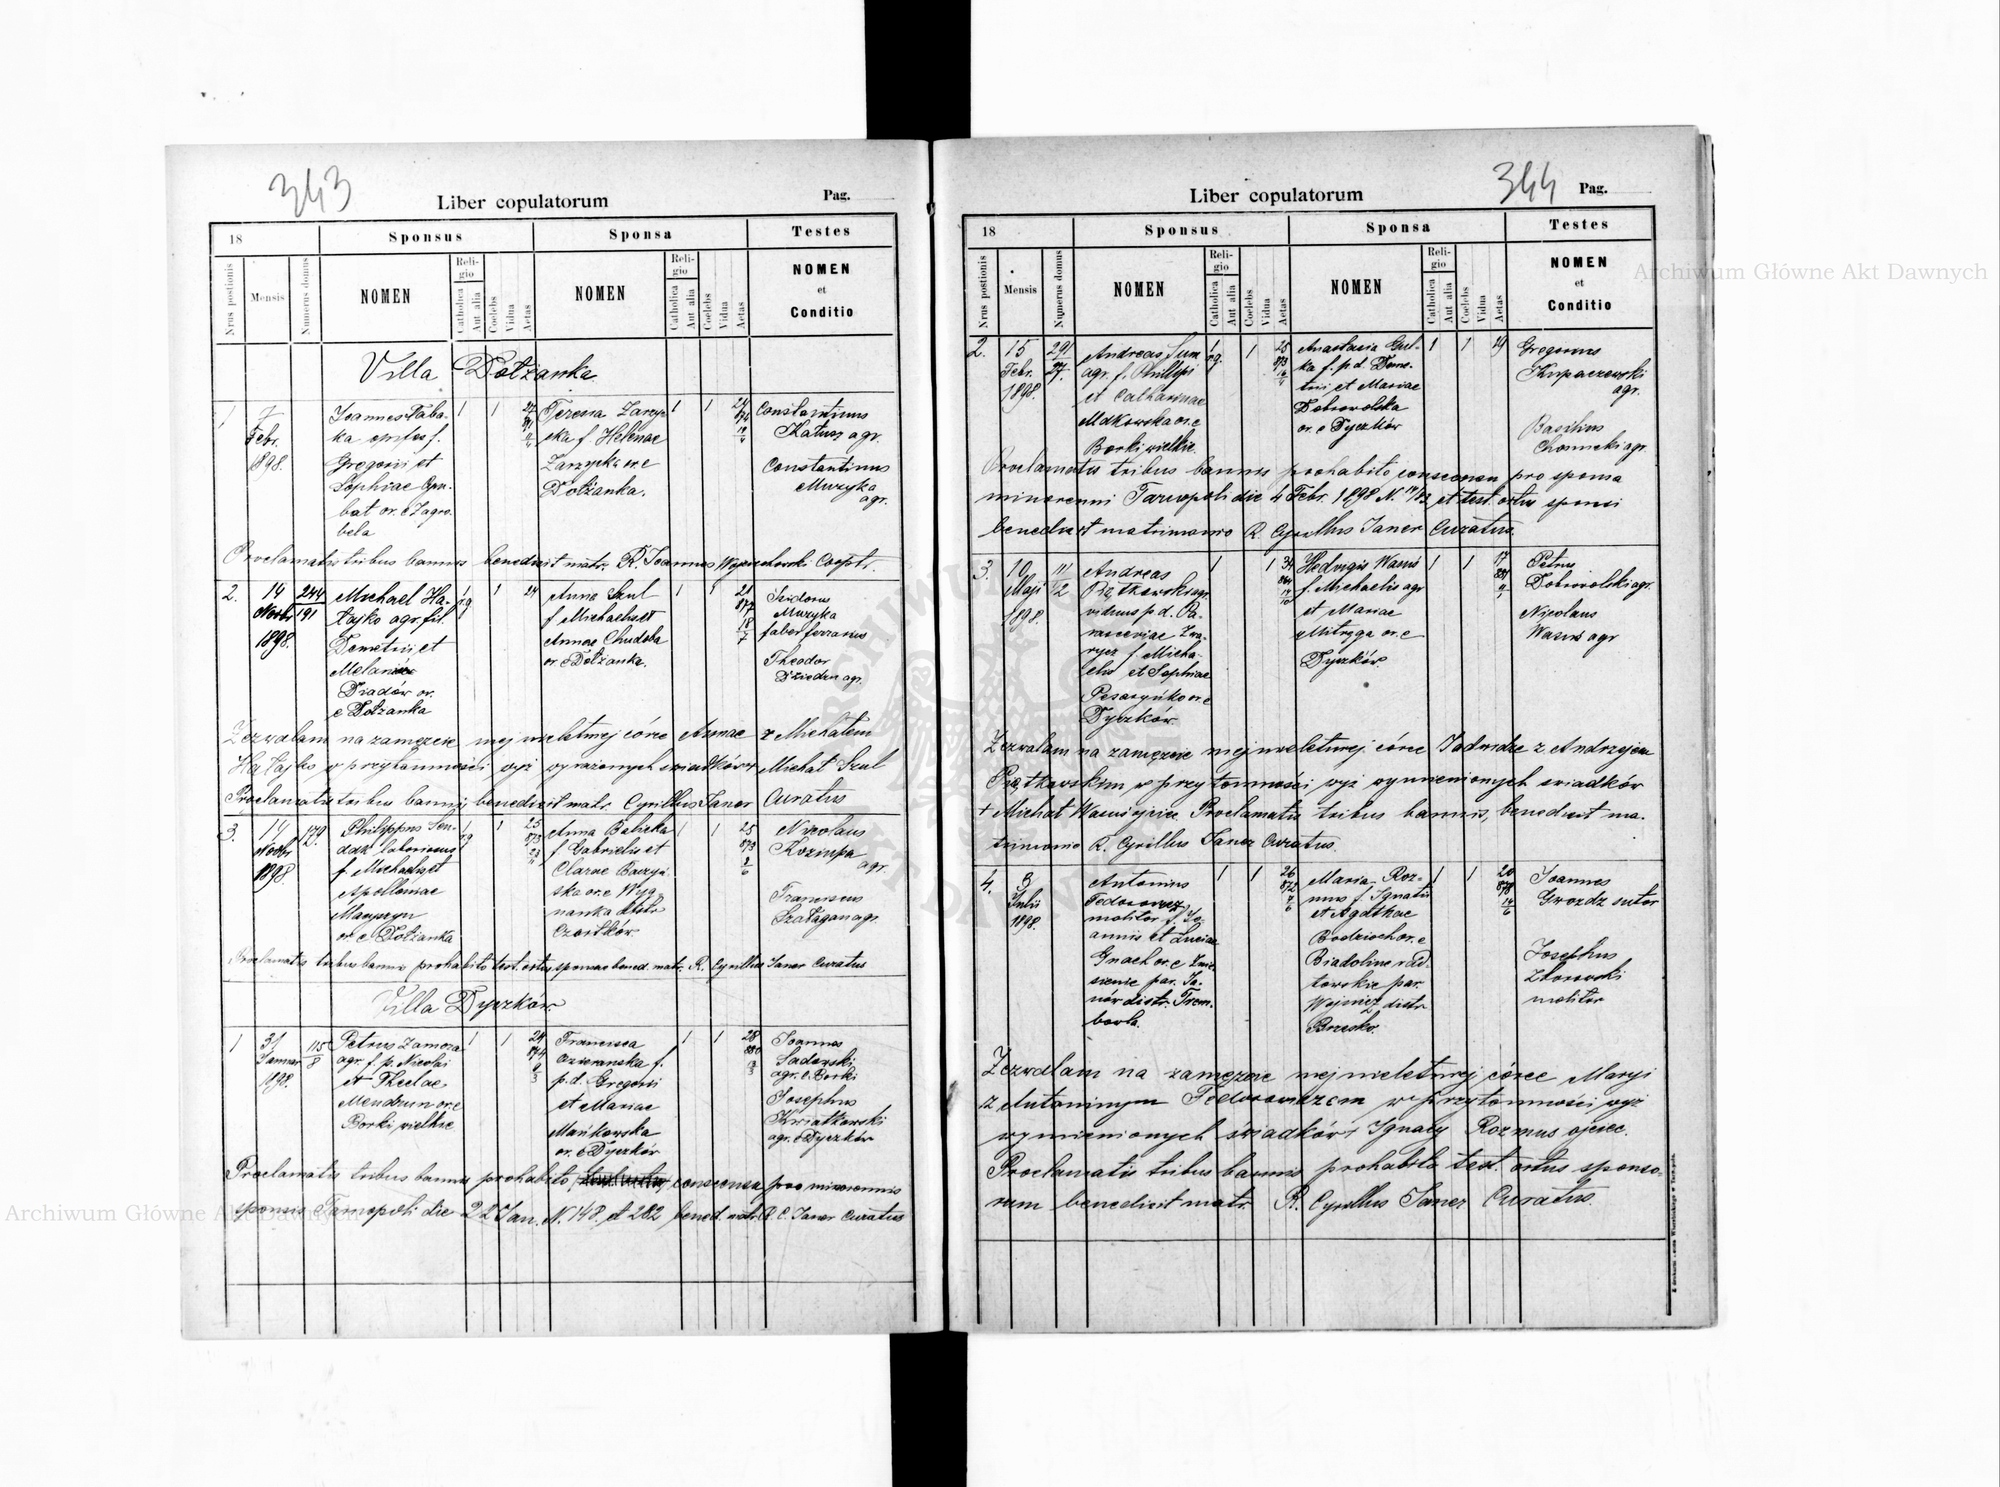 343
Liber copulatorum
Pag.
18
Sponsus
Sponsa
Testes
Nrus postionis
Mensis
Numerus domus
NOMEN
Religio
Catholica
Aut alia
Coelebs
Vidua
Aetas
NOMEN
Religio
Catholica
Aut alia
Coelebs
Vidua
Aetas
NOMEN
et
Conditio
Villa Dołżanka
1
7
Febr.
1898.
Joannes Taba-
ka f.
Gregorii et
Sophiae
bat or. e Zagro-
bela
1
1
Teressa Zarzyc-
ka f. Helenae
Zarzycka or. e
Dołżanka.
1
1
Constantinus
Katus agr.
Constantinus
Muzyka
agr.
Proclamatis tribus bannis benedixit matr. R. Joannes Wojciechowski Coop.
2.
14
Novbr
1898.
244
191
Michael Ha-
łajko agr. fil.
Demetrii et
Melaniae
Diadów or.
e Dołżanka
1
24
Anna Szul
f Michaelis et
Annae Chudoba
or. e Dołżanka.
1
1
21
877
18
7
Isidorus
Muzyka
faber ferrarius
Theodor
Dziedzic agr.
Zezwalam na zamęzcie mej nieletniej córce Annae z Michałem
Hałajko w przytomności wyż wyrażonych swiadków Michał Szul
Proclamatis tribus bannis, benedixit matr. Cyrillus Janer Curatus
3.
14
Novbr
1898.
179.
Philippus Sen-
daz laboriosus
f Michaelis et
Apolloniae
Maryszyn
or. e Dołżanka
1
25
Anna Babirka
f Gabrielis et
Clarae Baczyń-
ska or. e Wyg-
nanka distr.
Czortków.
1
1
25
873
2
6
Nicolaus
Kozinpa
agr.
Franciscus
Szałagan agr.
Proclamatis tribus bannis prohabito test. ortus sponsae bened. matr. R. Cyrillus Janer Curatus
Villa Dyczków.
1
31
Januar
1898.
115
8
Petrus Zamoza
agr. f. p. Nicolai
et Theclae
Mendrun or. e
Borki wielkie
1
1
24
874
Francisca
Ozieranska f.
p. d. Gregorii
et Mariae
Mańkowska
or. e Dyczków
1
1
28
Joannes
Sadowski
agr. e Borki
Josephus
Kwiatkowski
agr. e Dyczków
Proclamatis tribus bannis prohabito consensu pro minorennis
sponsis Tarnopoli die 22 Jan. N. 148. et 282 bened. matr. R. C. Janer Curatus
344
Liber copulatorum
Pag.
18
Sponsus
Sponsa
Testes
Nrus postionis
Mensis
Numerus domus
NOMEN
Religio
Catholica
Aut alia
Coelebs
Vidua
Aetas
NOMEN
Religio
Catholica
Aut alia
Coelebs
Vidua
Aetas
NOMEN
et
Conditio
2.
15
Febr.
1898.
291
27.
Andreas Sum
agr. f. Phillipi
et Catharinae
Mdkowska or. e
Borki wielkie.
1
25
873
Anastasia Gul-
ka f. p. d. Deme-
trii et Mariae
Dobrowolska
or. e Dyczków
1
1
19
Gregorius
Krupaczewski
agr.
Basilius
Chomicki agr.
Proclamatis tribus bannis prohabito consensu pro sponsa
minorenni Tarnopoli die 4 Febr. 1898 N. et test. ortus sponsi
benedixit matrimonio R. Cyrillus Janer Curatus.
3.
10
Maji
1898.
111
2
Andreas
Piątkowski agr.
viduus p. d. Pa-
rasceviae Zwa-
rycz f. Micha-
elis et Sophiae
Pesaryńko or. e
Dyczków.
1
1
34
864
Hedvigis Wasiis
f. Michaelis agr
et Mariae
Mitręga or. e
Dyczków
1
1
17
881
Petrus
Dobrowolski agr.
Nicolaus
Wasis agr
Zezwalam na zamęzcie mej nieletniej córce Jadwidze z Andrzejem
Piątkowskim w przytomności wyż wymienionych swiadków
+ Michał Wasis ojciec. Proclamatis tribus bannis, benedixit ma-
trimonio R. Cyrillus Janer Curatus.
4.
3
Julii
1898.
Antonius
Fedorowicz
molitor f. Jo-
annis et Luciae
Gnach or. e Zwie-
sienie par. Ja-
nów distr. Trem-
bowla.
1
1
26
872
7
6
Maria Roz-
mus f. Ignatii
et Agathae
Bodzioch or. e
Biadoline rad-
łowskie par.
Wojnicz distr
Brzesko.
1
1
20
878
14
6
Joannes
Gwozdz sutor
Josephus
Zborowski
molitor
Zezwalam na zamęzcie mej nieletniej córce Maryi
z Antonimym Fedorowiczem w przytomności wyż
wymienionych świadków Ignacy Rozmus ojciec.
Proclamatis tribus bannis prohabito test. ortus sponso-
rum benedixit matr. R. Cyrillus Janer Curatus.
Archiwum Główne Akt Dawnych
Archiwum Główne Akt Dawnych